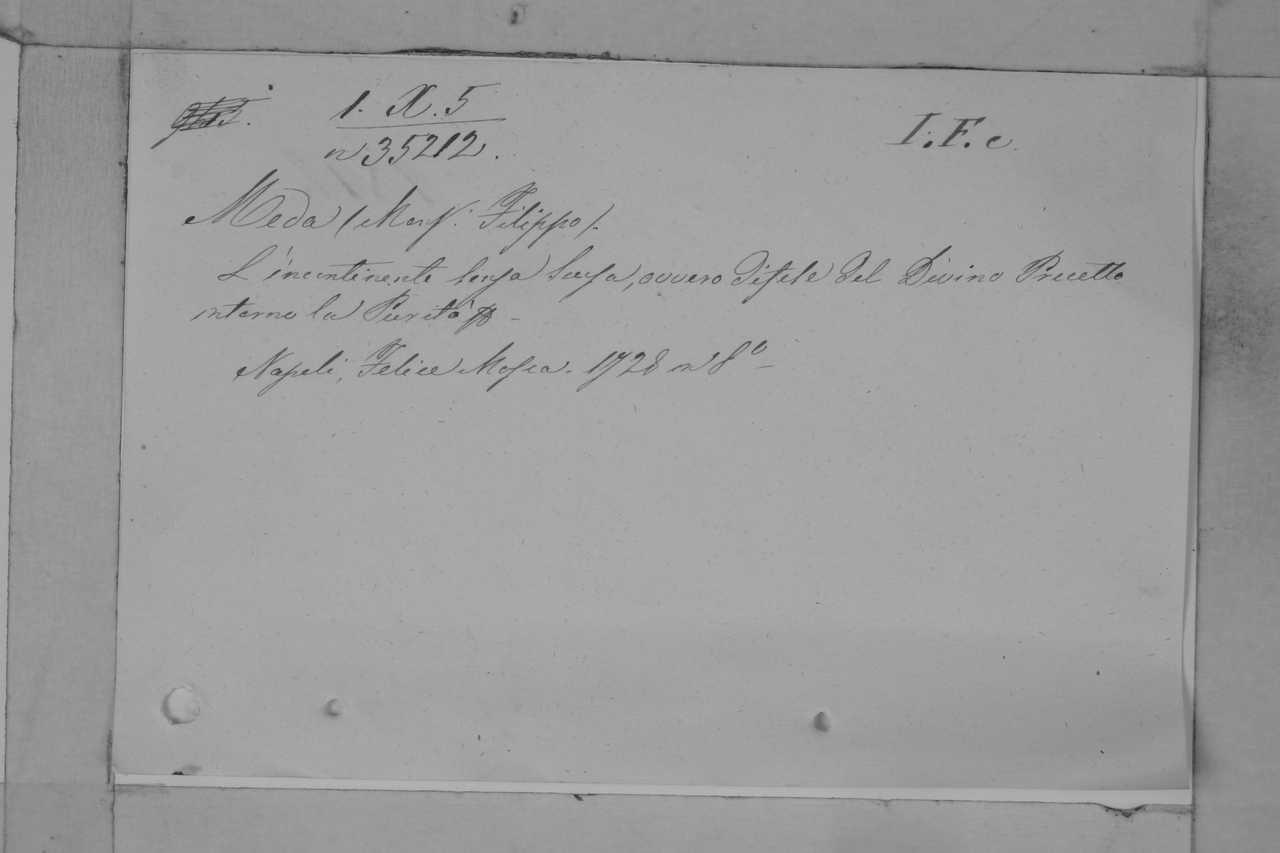 1. X. 5
n 35212.
I. F. c
Meda (Mons.r Filippo).
L'incontinente senza scusa, ovvero Difese del Divino Precetto
intorno la Purità
Napoli, Felice Mosca. 1728 in 8°